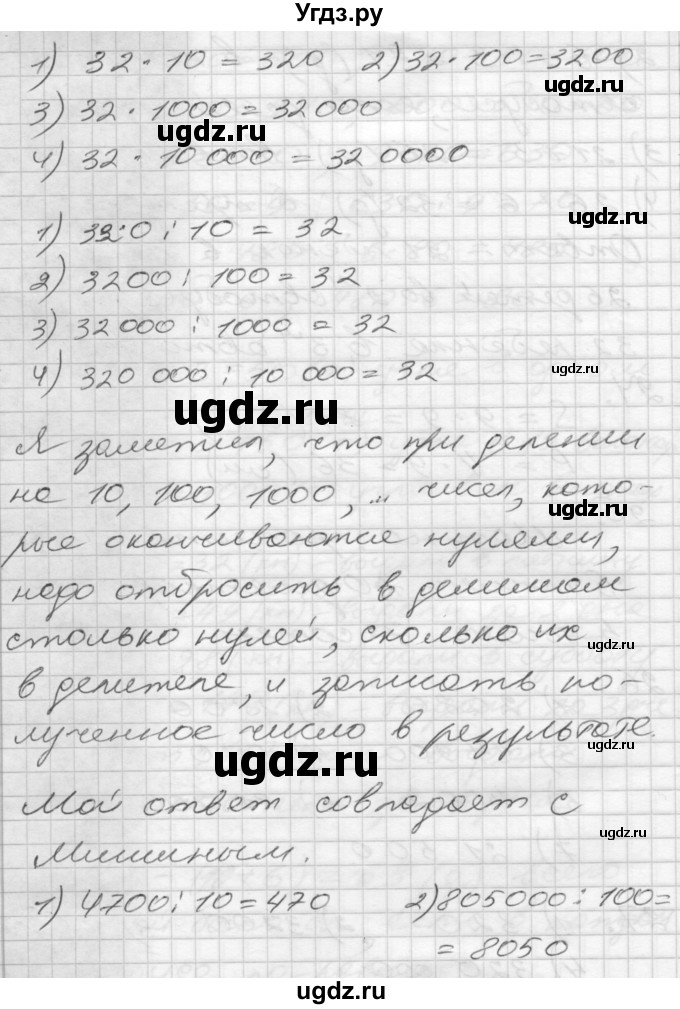 Угдз.ру
1) 32 · 10 = 320 2) 32 · 100 = 3200
ugdz.ru
3) 32 · 1000 = 32 000
ugdz.ru
4) 32 · 10 000 = 32 0000
ugdz.ru
1) 320 : 10 = 32
2) 3200 : 100 = 32
3) 32 000 : 1000 = 32
4) 320 000 : 10 000 = 32
ugdz.ru
ugdz.ru
Я заметил, что при делении
на 10, 100, 1000, ... чисел, кото-
ugdz.ru
рые оканчиваются нулями,
надо отбросить в делимом
столько нулей, сколько их
ugdz.ru
в делителе, и записать по-
лученное число в результате.
ugdz.ru
ugdz.ru
Мой ответ совпадает с
ugdz.ru
Мишиным.
1) 4700 : 10 = 470 2) 805000 : 100 =
= 8050
ugdz.ru
ugdz.ru